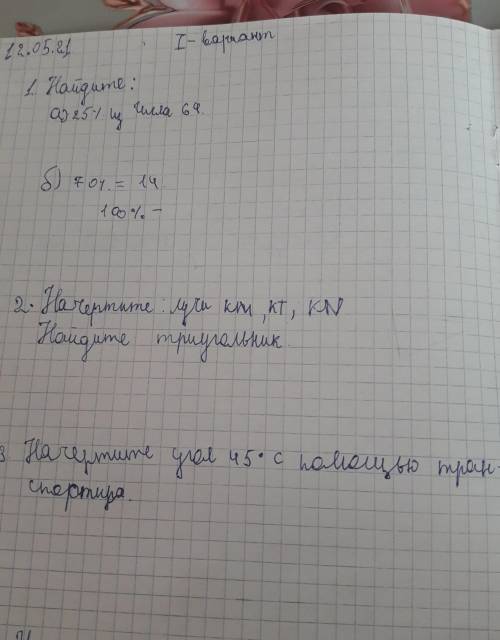 12.05.21
I-вариант
1. Найдите:
а) 25% из числа 64.
б) 70% = 14
100% -
2. Начертите: лучи КМ, КТ, KN
Найдите треугольник.
3 Начертите угол 45° с помощью тран-
спортира.